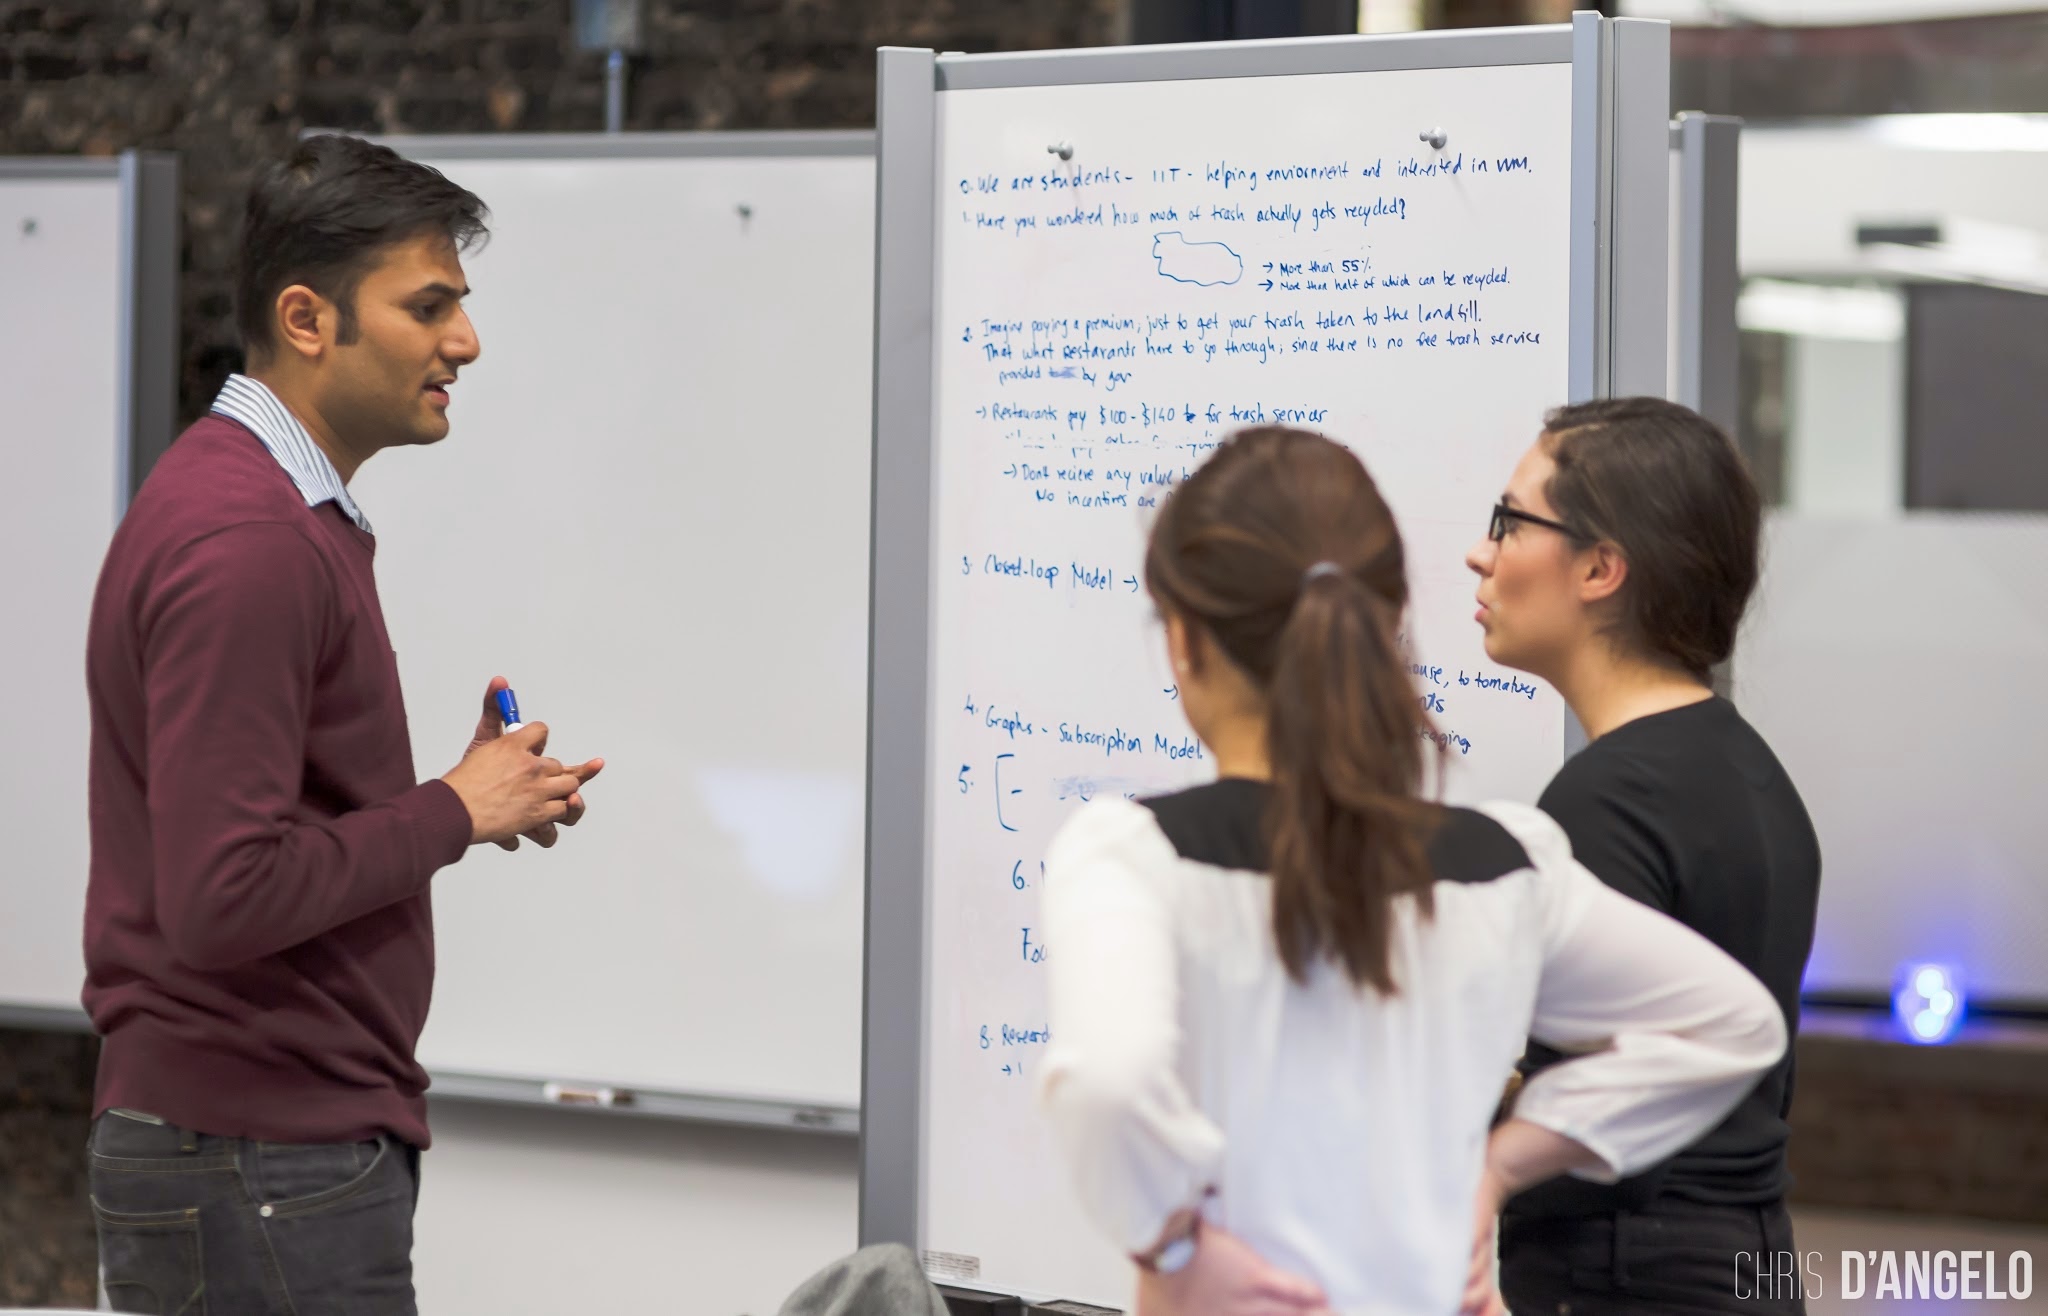 0. We are students - IIT - helping enviornment and interested in WM.
1. Have you wondered how much of trash actually gets recycled?
→ More than 55%
→ More than half of which can be recycled.
2. Imagine paying a premium, just to get your trash taken to the landfill.
That what Restarants have to go through, since there is no free trash service
provided by gov
→ Restaurants pay $100 - $140 for trash services
→ Dont recieve any value
No incentives are
3. Closed-loop Model →
→
house, to tomatoes
4. Graphs - Subscription Model.
5. [ -
6.
8. Research
→
CHRIS D'ANGELO